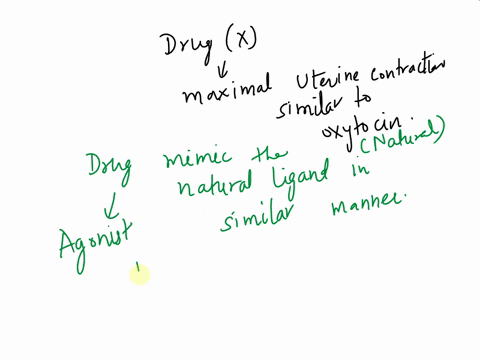 Drug (X)
↓
maximal uterine contraction
similar to
oxytocin.
(Natural)
Drug mimic the
natural ligand in
similar manner.
↓
Agonist